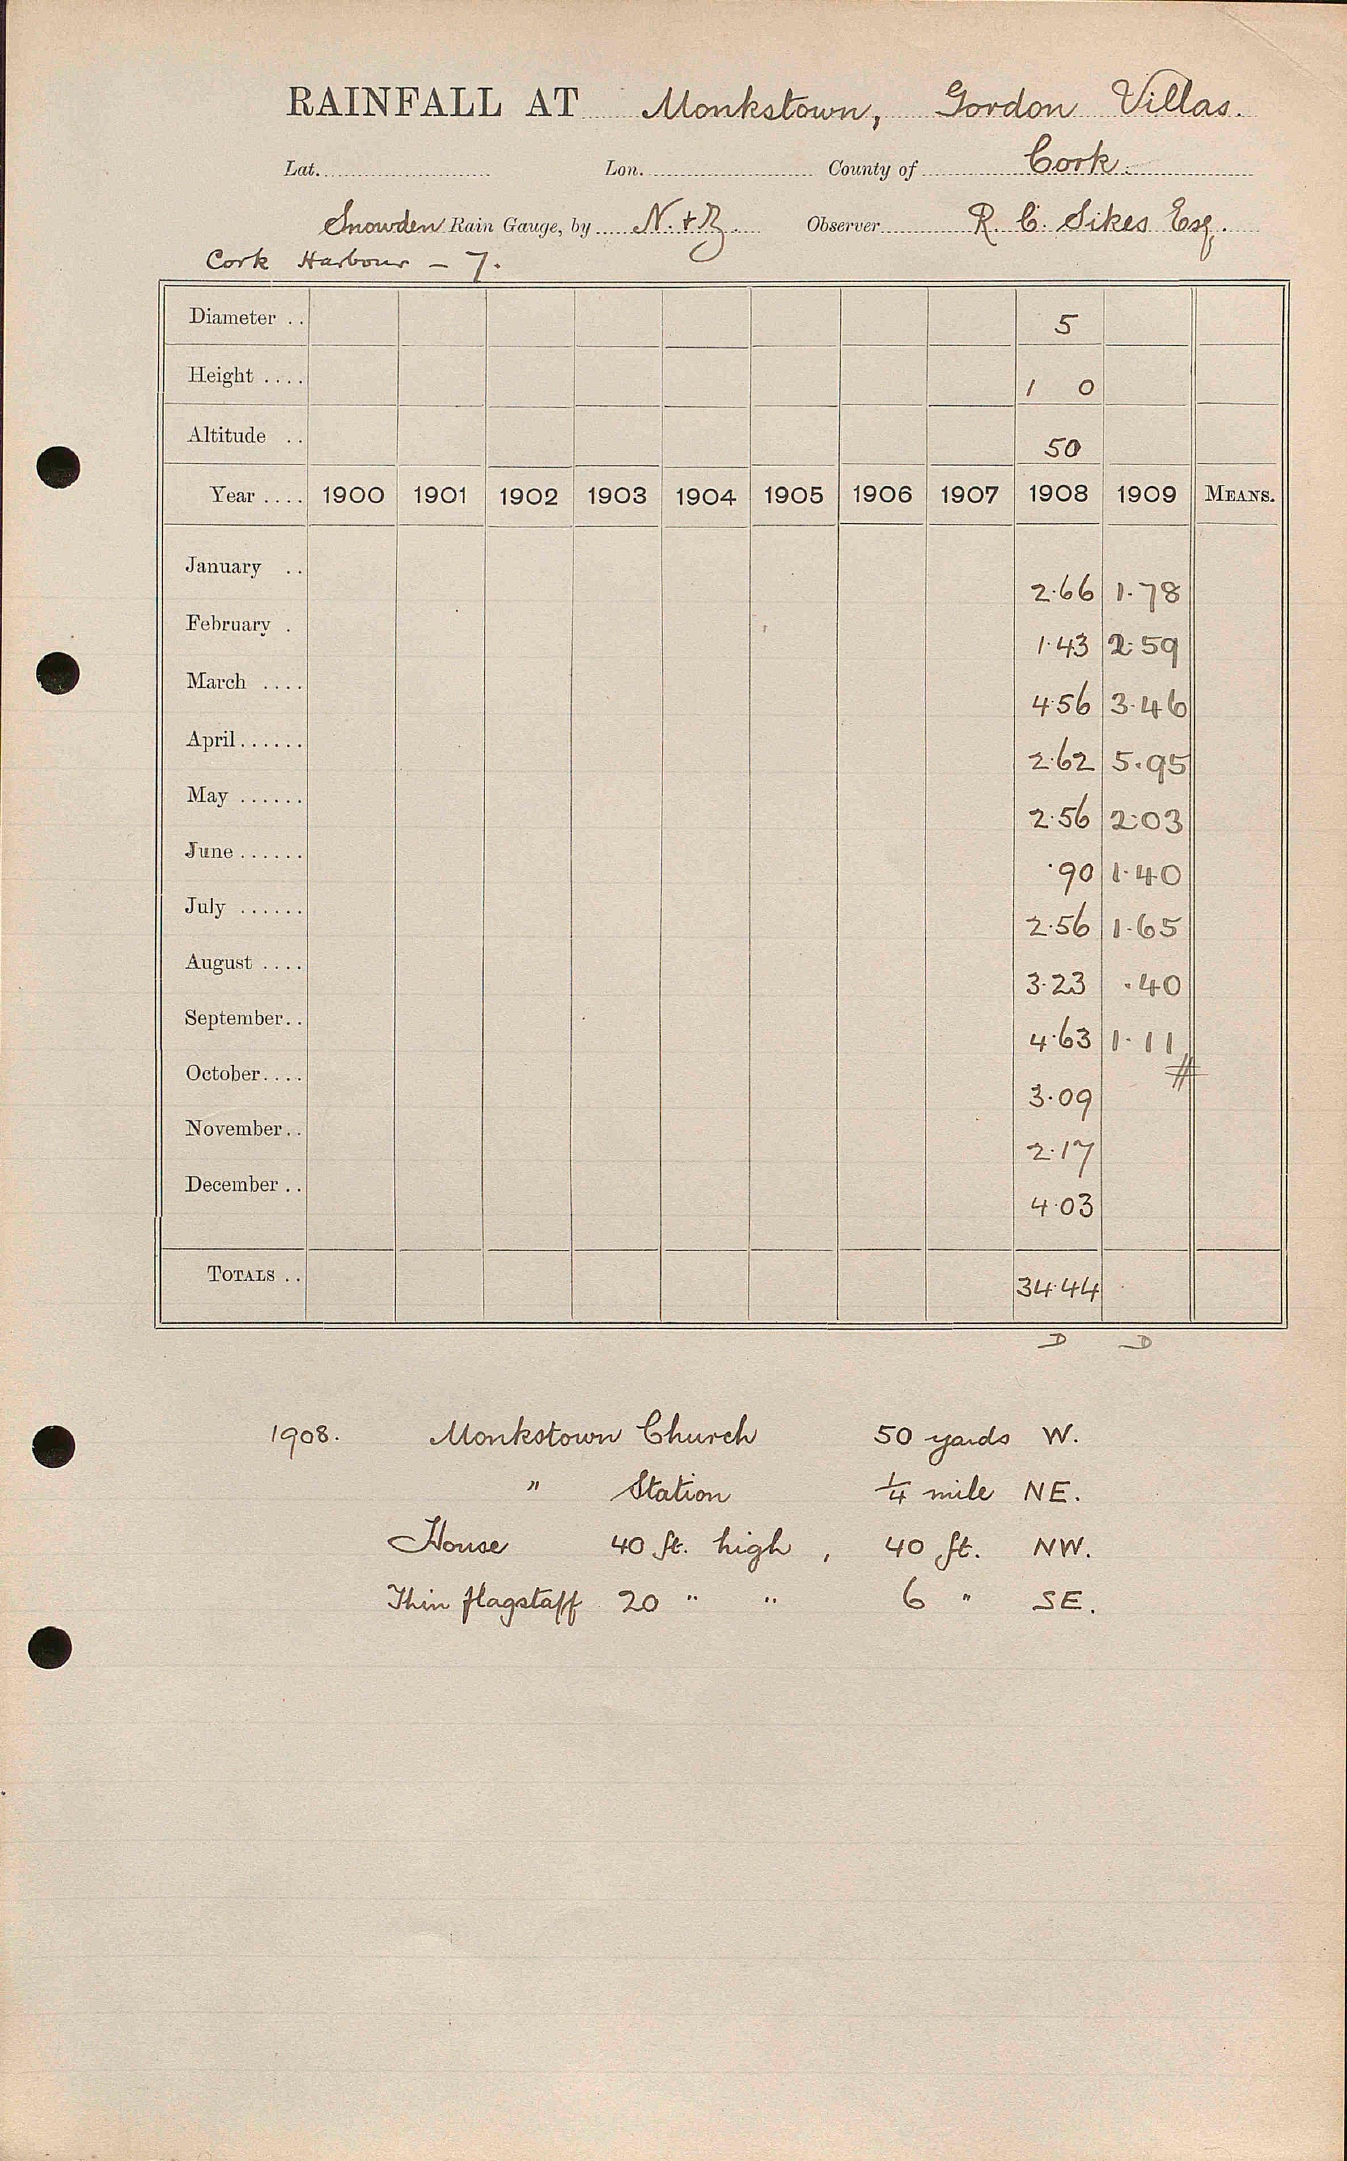 RAINFALL AT Monkstown, Gordon Villas.
Lat. Lon. County of Cork.
Snowden Rain Gauge, by N. & Z. Observer R. C. Sikes Esq.
Cork Harbour – 7.
Diameter .. 5
Height .... 1 0
Altitude .. 50
Year .... 1900 1901 1902 1903 1904 1905 1906 1907 1908 1909 MEANS.
January .. 2.66 1.78
February . 1.43 2.59
March .... 4.56 3.46
April...... 2.62 5.95
May ...... 2.56 2.03
June...... .90 1.40
July ...... 2.56 1.65
August .... 3.23 .40
September.. 4.63 1.11
October.... 3.09
November.. 2.17
December.. 4.03
TOTALS .. 34.44
D D
1908. Monkstown Church 50 yards W.
" Station 1/4 mile NE.
House 40 ft. high , 40 ft. NW.
Thin flagstaff 20 " " 6 " SE.